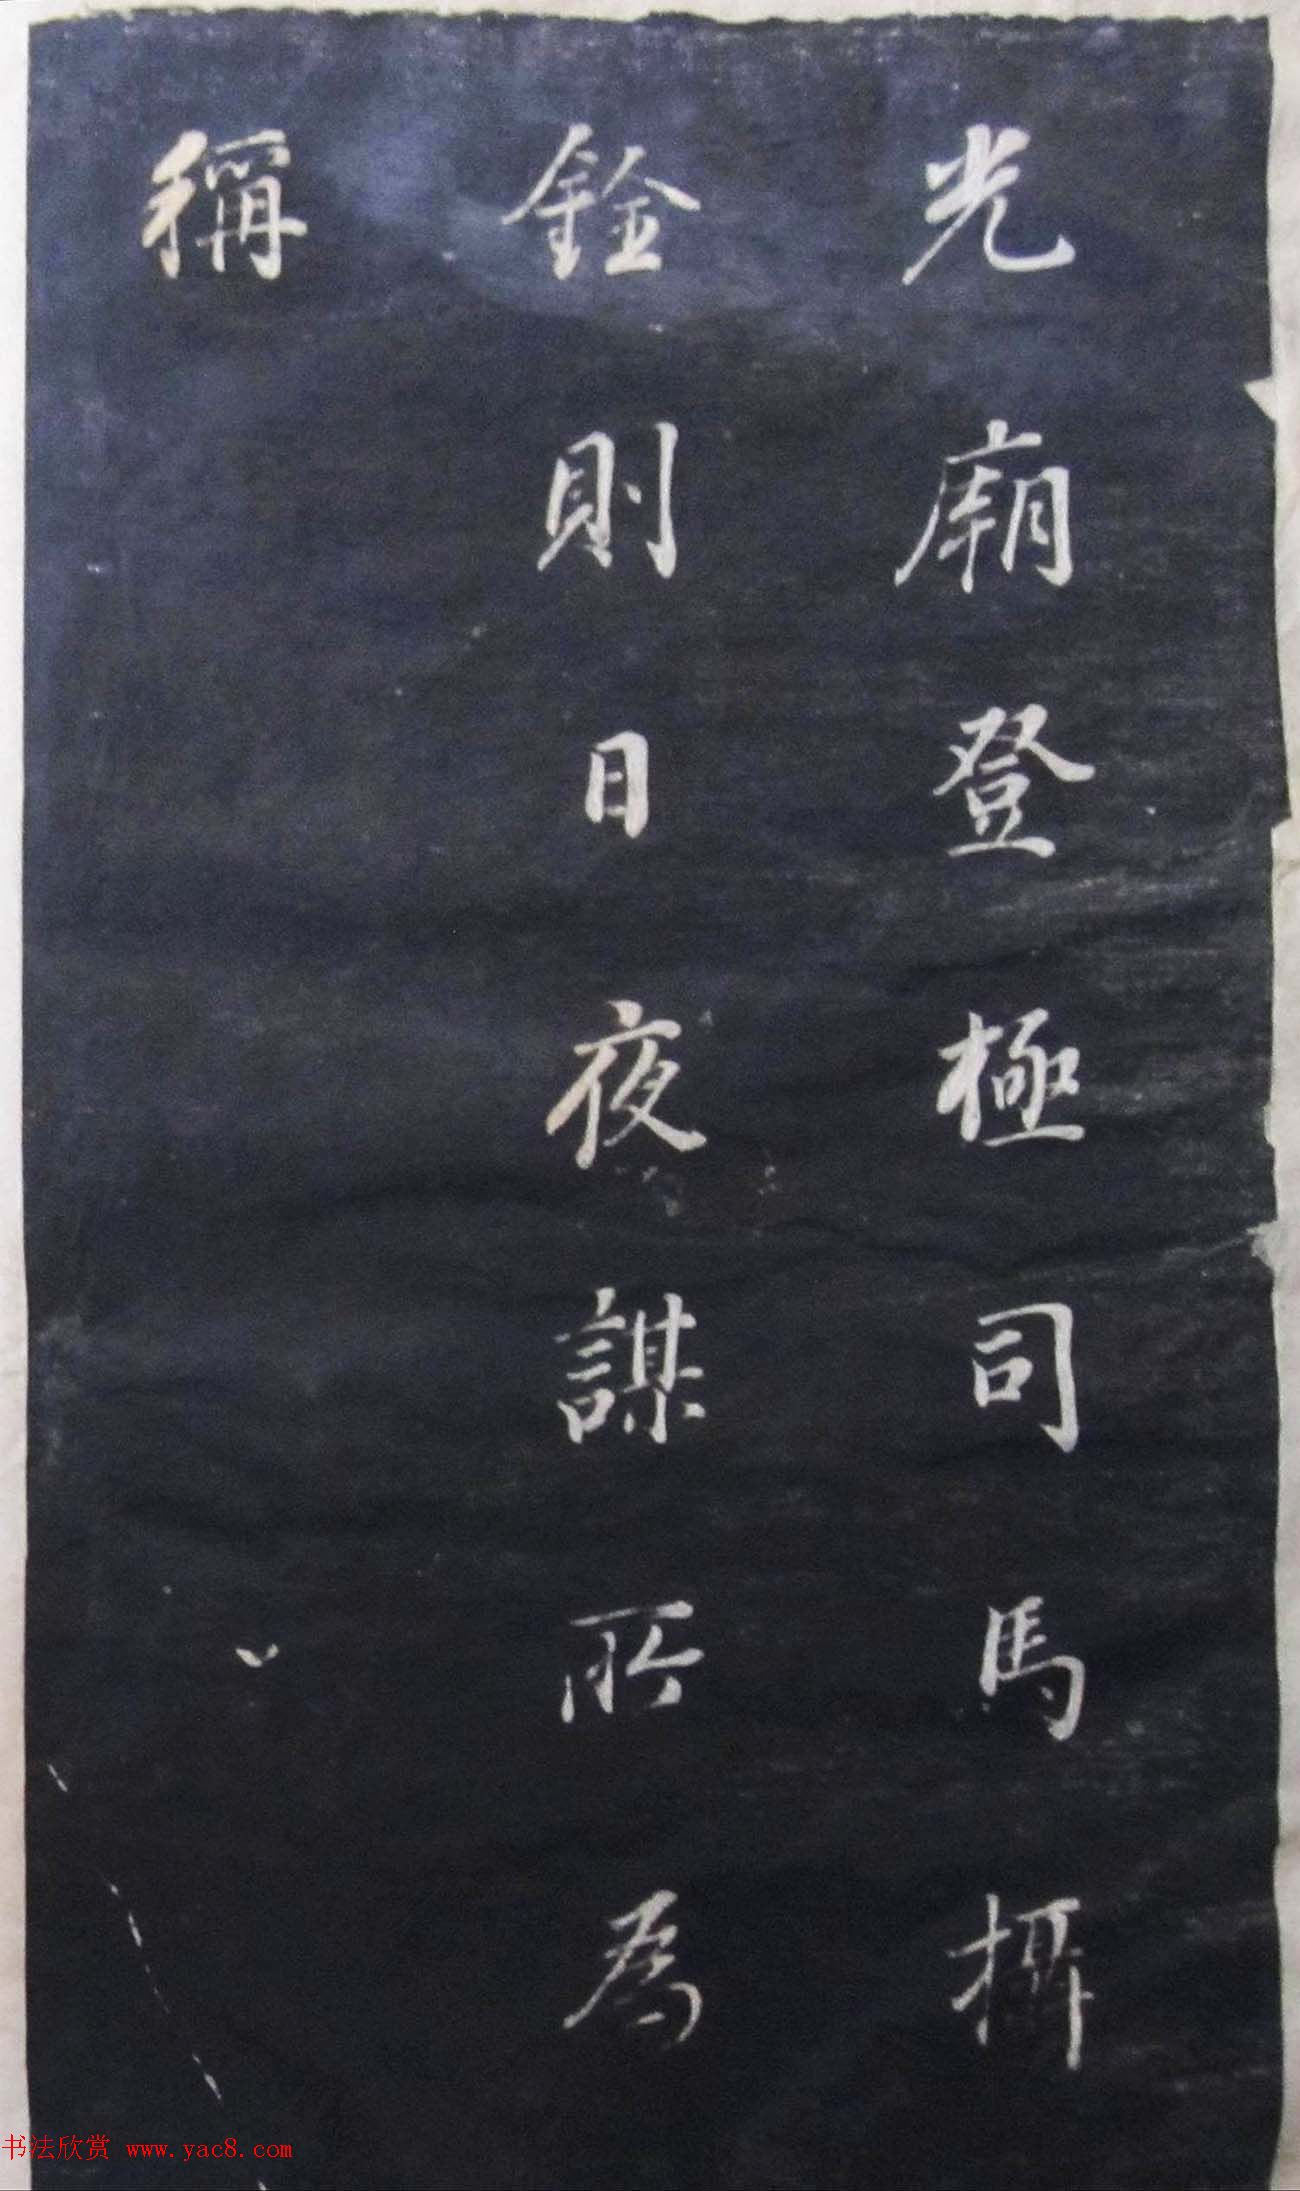 光廟登極司馬攝
銓則日夜謀所為
稱
书法欣赏 www.yac8.com